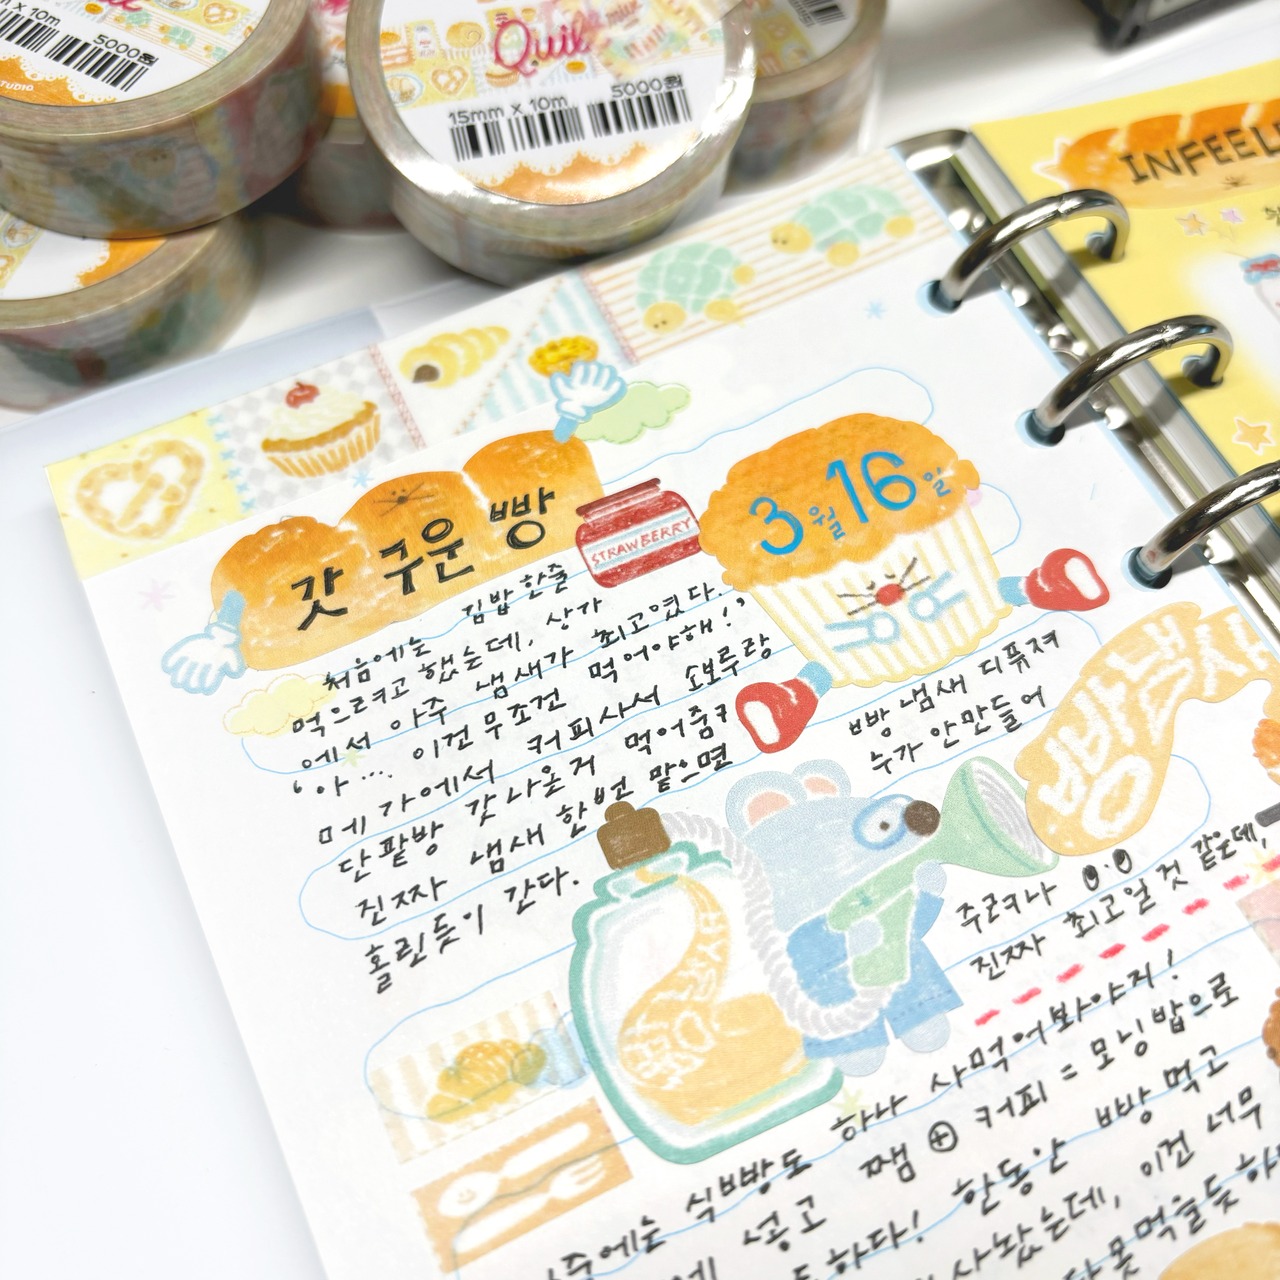 x 10m
5000원
STUDIO
Quil
15mm x 10m
5000원
INFEEL
갓 구운 빵
STRAWBERRY
3월 16일
처음에는 김밥 한줄
먹으려고 했는데, 상가
에서 아주 냄새가 최고였다.
'아... 이건 무조건 먹어야해!'
메가에서 커피사서 소보루랑
단팥방 갓 나온거 먹어줌ㅋ
진짜 냄새 한번 맡으면
홀린듯이 간다.
빵 냄새 디퓨져
누가 안만들어
주려나
진짜 최고일 것 같은데,
식빵도 하나 사먹어봐야지!
쨈 + 커피 = 모닝밥으로
한동안 빵 먹고
사왔는데, 이건 너무